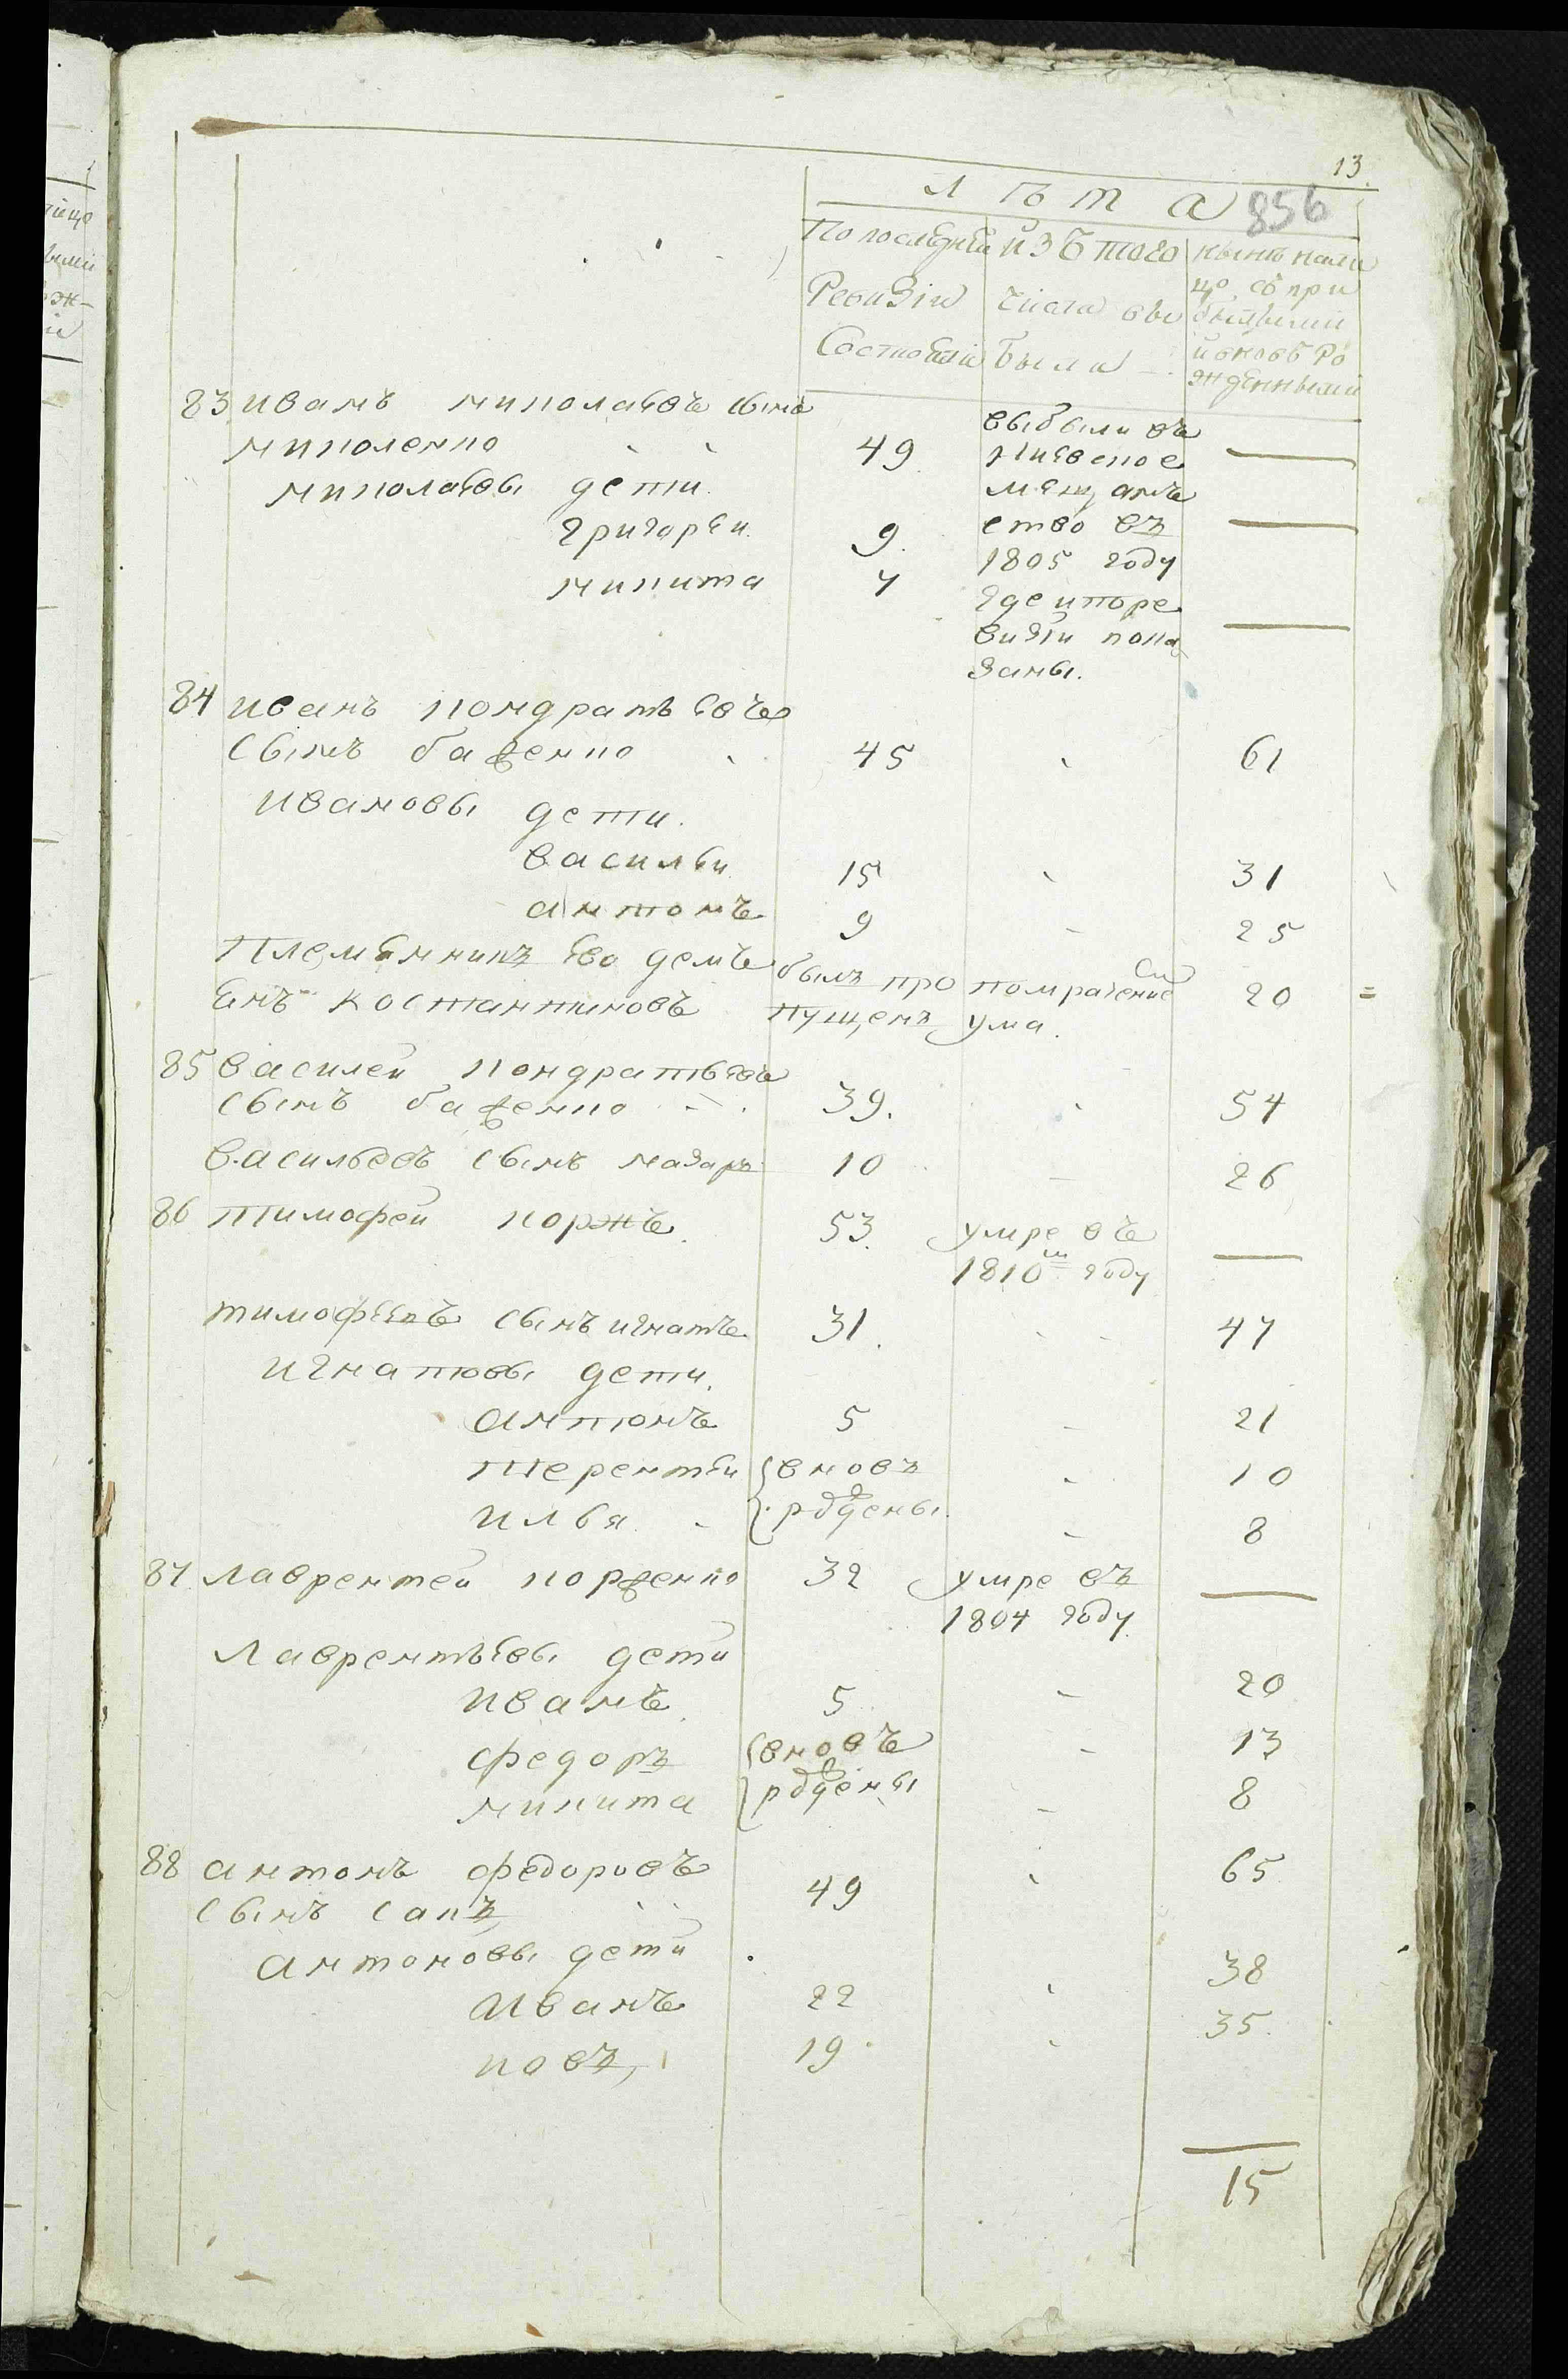 13.
856
Лѣта
По последней Ревизіи Состоялo | изъ того числа выбыло | нынѣ налицо съ прибылыми и вновь рожденными
83 иванъ николаевъ сынъ
николенко 49 выбыли въ Киевское мещанство въ 1805 году где и по ревизіи показаны. —
николаевы дети
григорей 9. —
никита 7 —
84 иванъ кондратьевъ
сынъ баженко 45 61
ивановы дети.
василей 15 31
антонъ 9 25
племенникъ ево демъ былъ про помрачение
енъ костантиновъ пущенъ ума. 20 =
85 василей кондратьевъ
сынъ баженко 39. 54
васильевъ сынъ назаръ 10 26
86 тимофей коржъ 53. умре въ —
1810м году
тимофеевъ сынъ игнатъ 31. 47
игнатовы дети.
антонъ 5 21
терентей вновъ 10
илья рождены 8
87 лаврентей корженко 32 умре въ —
1804 году
лаврентьевы дети
иванъ 5 20
федоръ вновъ 13
никита рождены 8
88 антонъ федоровъ 65
сынъ сакъ 49
антоновы дети
иванъ 22 38
яковъ 19 35.
15